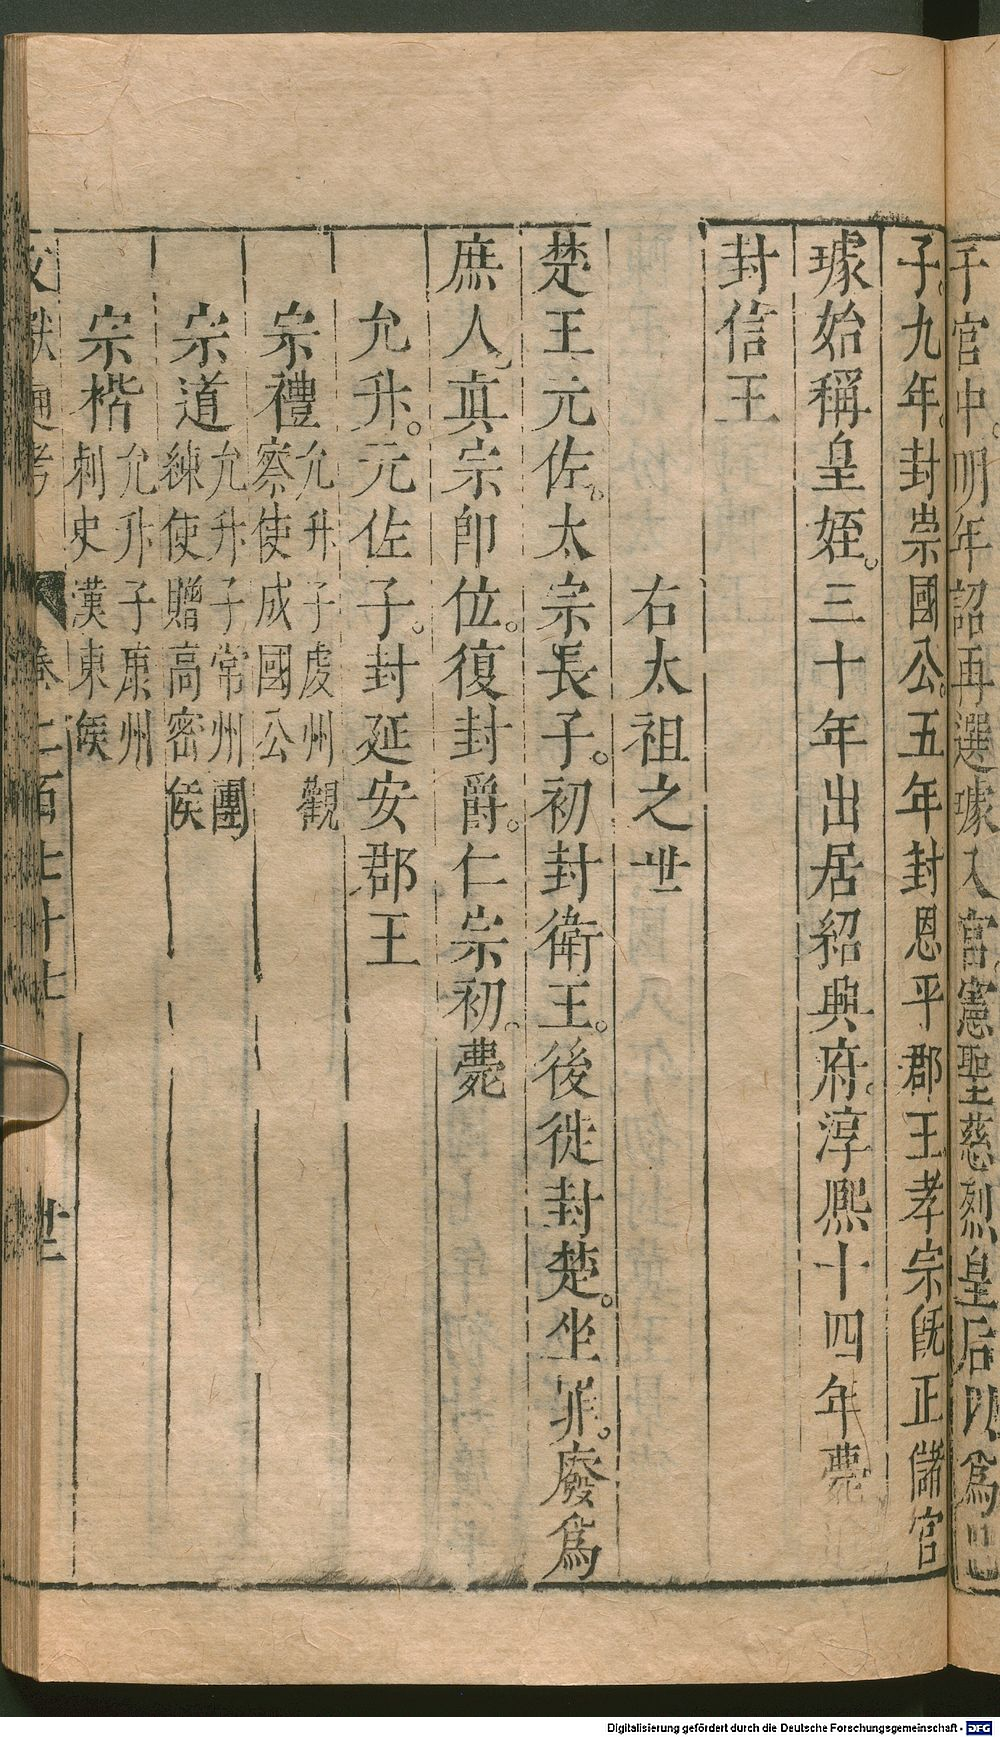 子官中明年詔再選璩入宮憲聖慈烈皇后以爲
子九年封崇國公五年封恩平郡王孝宗旣正儲宮
璩始稱皇姪三十年出居紹興府淳熙十四年薨
封信王
右太祖之世
楚王元佐太宗長子初封衛王後徙封楚坐罪廢爲
庶人真宗卽位復封爵仁宗初薨
允升元佐子封延安郡王
宗禮允升子虔州觀
察使成國公
宗道允升子常州團
練使贈高密侯
宗楷允升子康州
刺史漢東侯
文獻通考 卷二百七十七 廿
Digitalisierung gefördert durch die Deutsche Forschungsgemeinschaft - DFG